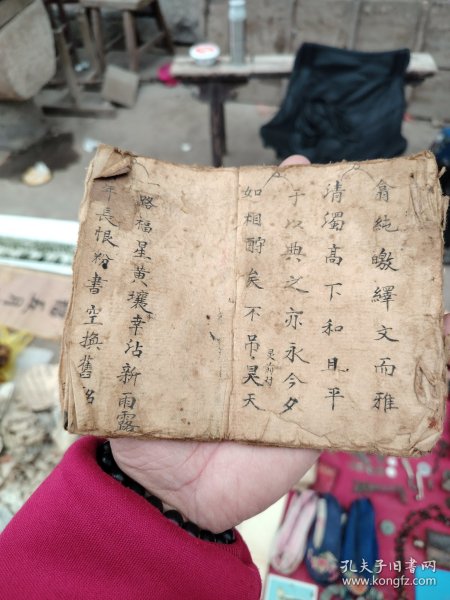 翕純皦繹文而雅
清濁高下和且平
于以典之亦永今夕
如相酧矣不吊昊天
一路福星黃壤幸沾新雨露
年長恨粉書空換舊名
孔夫子旧书网
www.kongfz.com